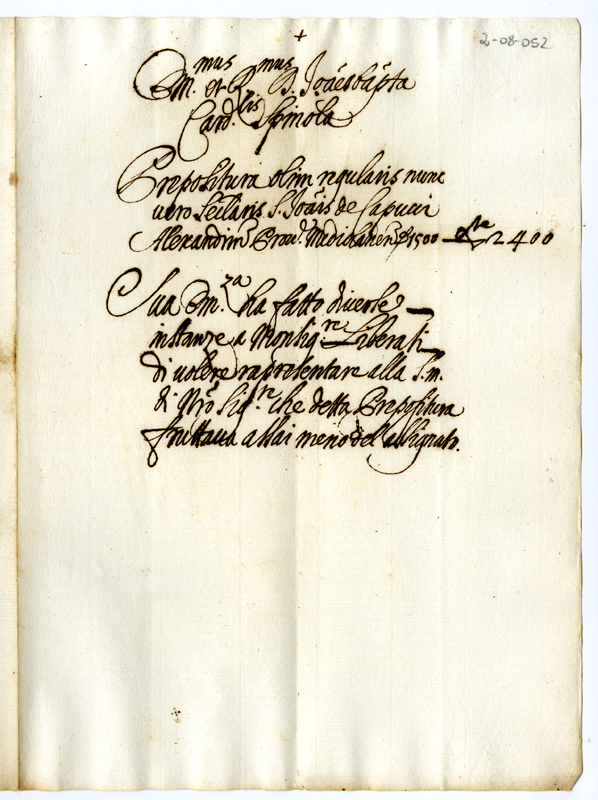 2-08-052
+
Em.mus et R.mus D. Joãesbap̃ta
Card.lis Spinola
Prepositura olim regularis nunc
uero seclaris S. Joãis de Capucij
Alexandrin̄ Prou.ᵉ Mediolanen̄ 1500 2400
Sua Em.za ha fatto diuerse
instanze a Monsig.re Liberati
di uolere rapresentare alla S.m.
di Nr̃o Sig.re che detta Prepositura
fruttaua assai meno del assignato.